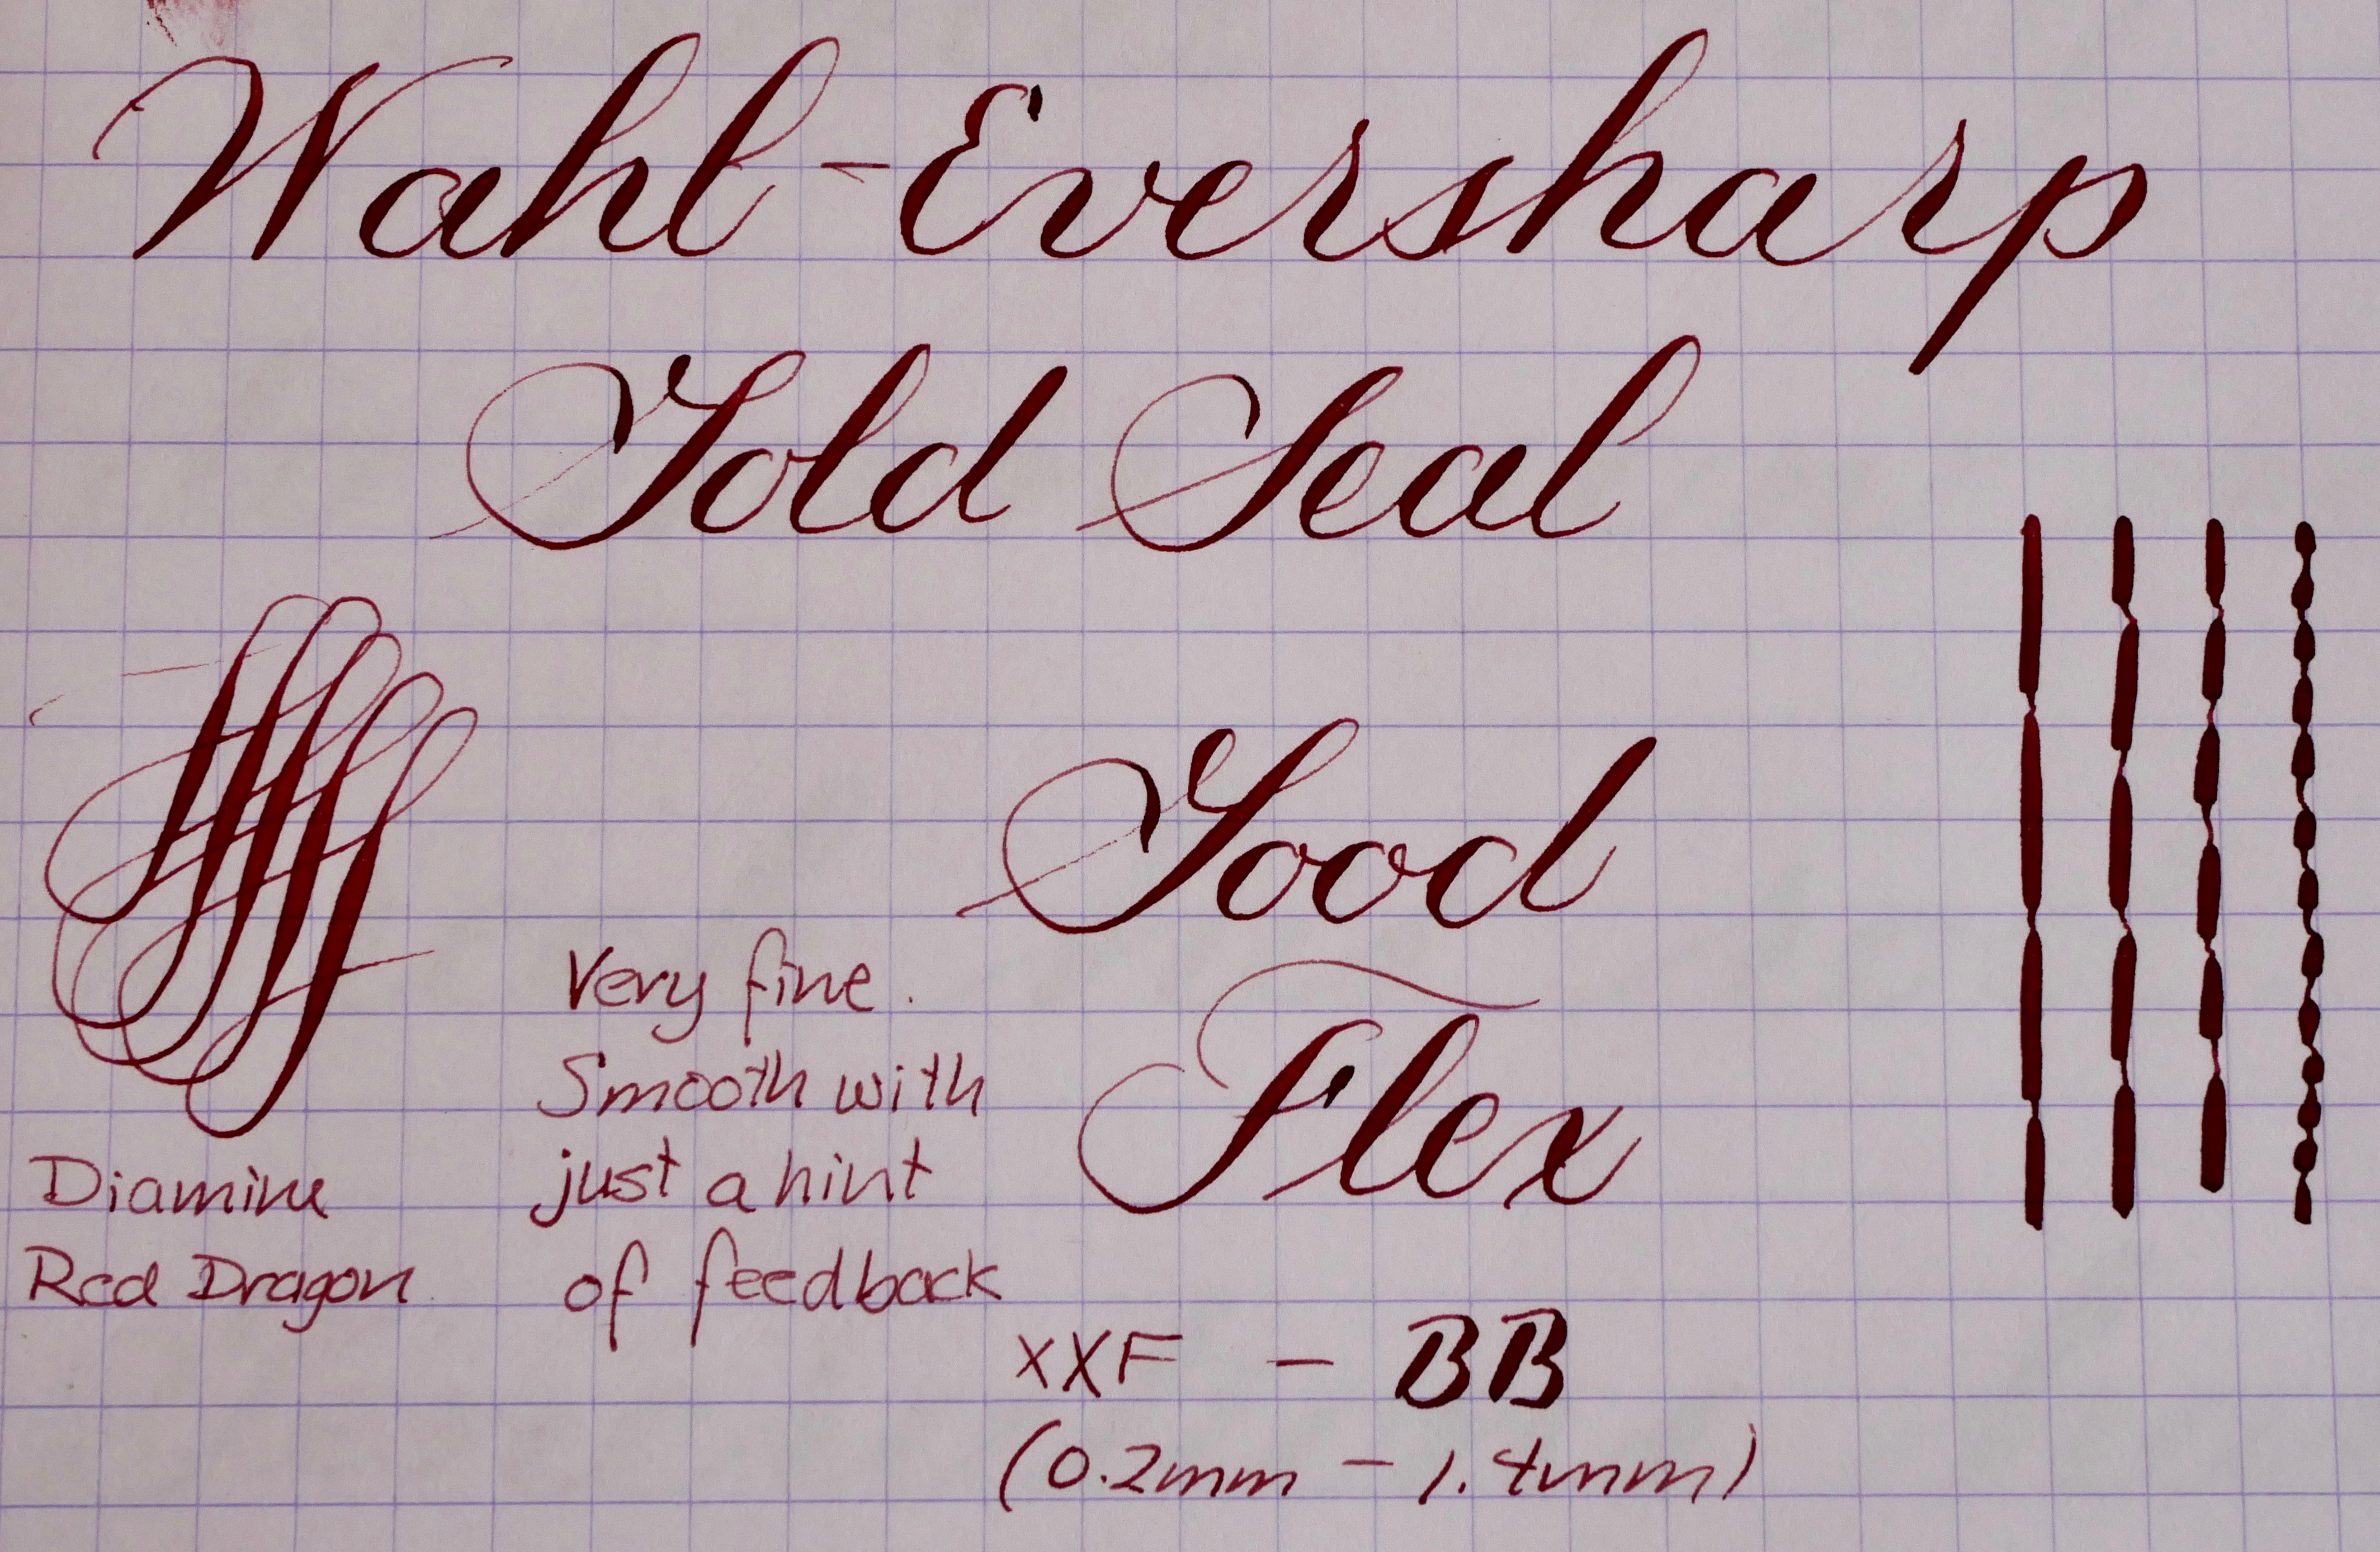 Wahl-Eversharp
Gold Seal
Good
Flex
Very fine.
Smooth with
just a hint
of feedback
Diamine
Red Dragon
XXF - BB
(0.2mm - 1.4mm)